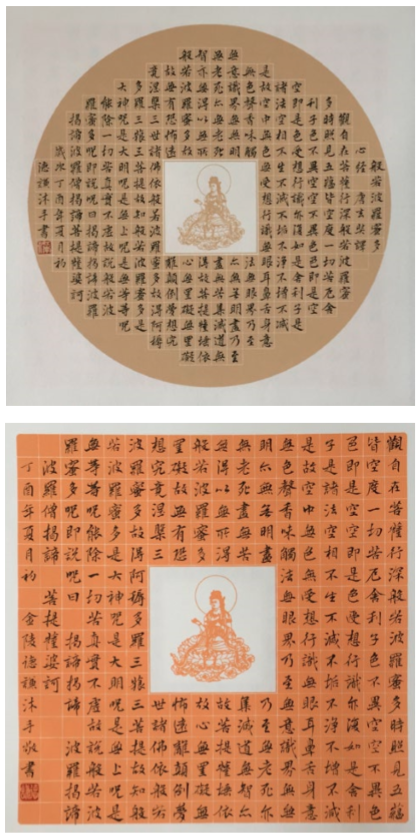 般若波羅蜜多
心經 唐玄奘譯
觀自在菩薩行深般若波羅蜜
多時照見五蘊皆空度一切苦厄舍
利子色不異空空不異色色即是空
空即是色受想行識亦復如是舍利子是
諸法空相不生不滅不垢不淨不增不減
是故空中無色無受想行識無眼耳鼻舌身意
無色聲香味觸法無眼界乃至
無意識界無無明亦無無明盡乃至
無老死亦無老死盡無苦集滅道無
智亦無得以無所得故菩提薩埵依
般若波羅蜜多故心無罣礙無罣礙
故無有恐怖遠離顛倒夢想究
竟涅槃三世諸佛依般若波羅蜜多故得阿耨
多羅三藐三菩提故知般若波羅蜜多是
大神咒是大明咒是無上咒是無等等咒
能除一切苦真實不虛故說般若波
羅蜜多咒即說咒曰揭諦揭諦波羅
揭諦波羅僧揭諦菩提薩婆訶
歲次丁酉年夏月於
德謙沐手書
觀自在菩薩行深般若波羅蜜多時照見五蘊
皆空度一切苦厄舍利子色不異空空不異色
色即是空空即是色受想行識亦復如是舍利
子是諸法空相不生不滅不垢不淨不增不減
是故空中無色無受想行識無眼耳鼻舌身意
無色聲香味觸法無眼界乃至無意識界無無
明亦無無明盡乃至無老死亦
無老死盡無苦集滅道無智亦
無得以無所得故菩提薩埵依
般若波羅蜜多故心無罣礙無
罣礙故無有恐怖遠離顛倒夢
想究竟涅槃三世諸佛依般若
波羅蜜多故得阿耨多羅三藐三菩提故知般
若波羅蜜多是大神咒是大明咒是無上咒是
無等等咒能除一切苦真實不虛故說般若波
羅蜜多咒即說咒曰 揭諦揭諦 波羅揭諦
波羅僧揭諦 菩提薩婆訶
丁酉年夏月於 金陵德謙沐手敬書